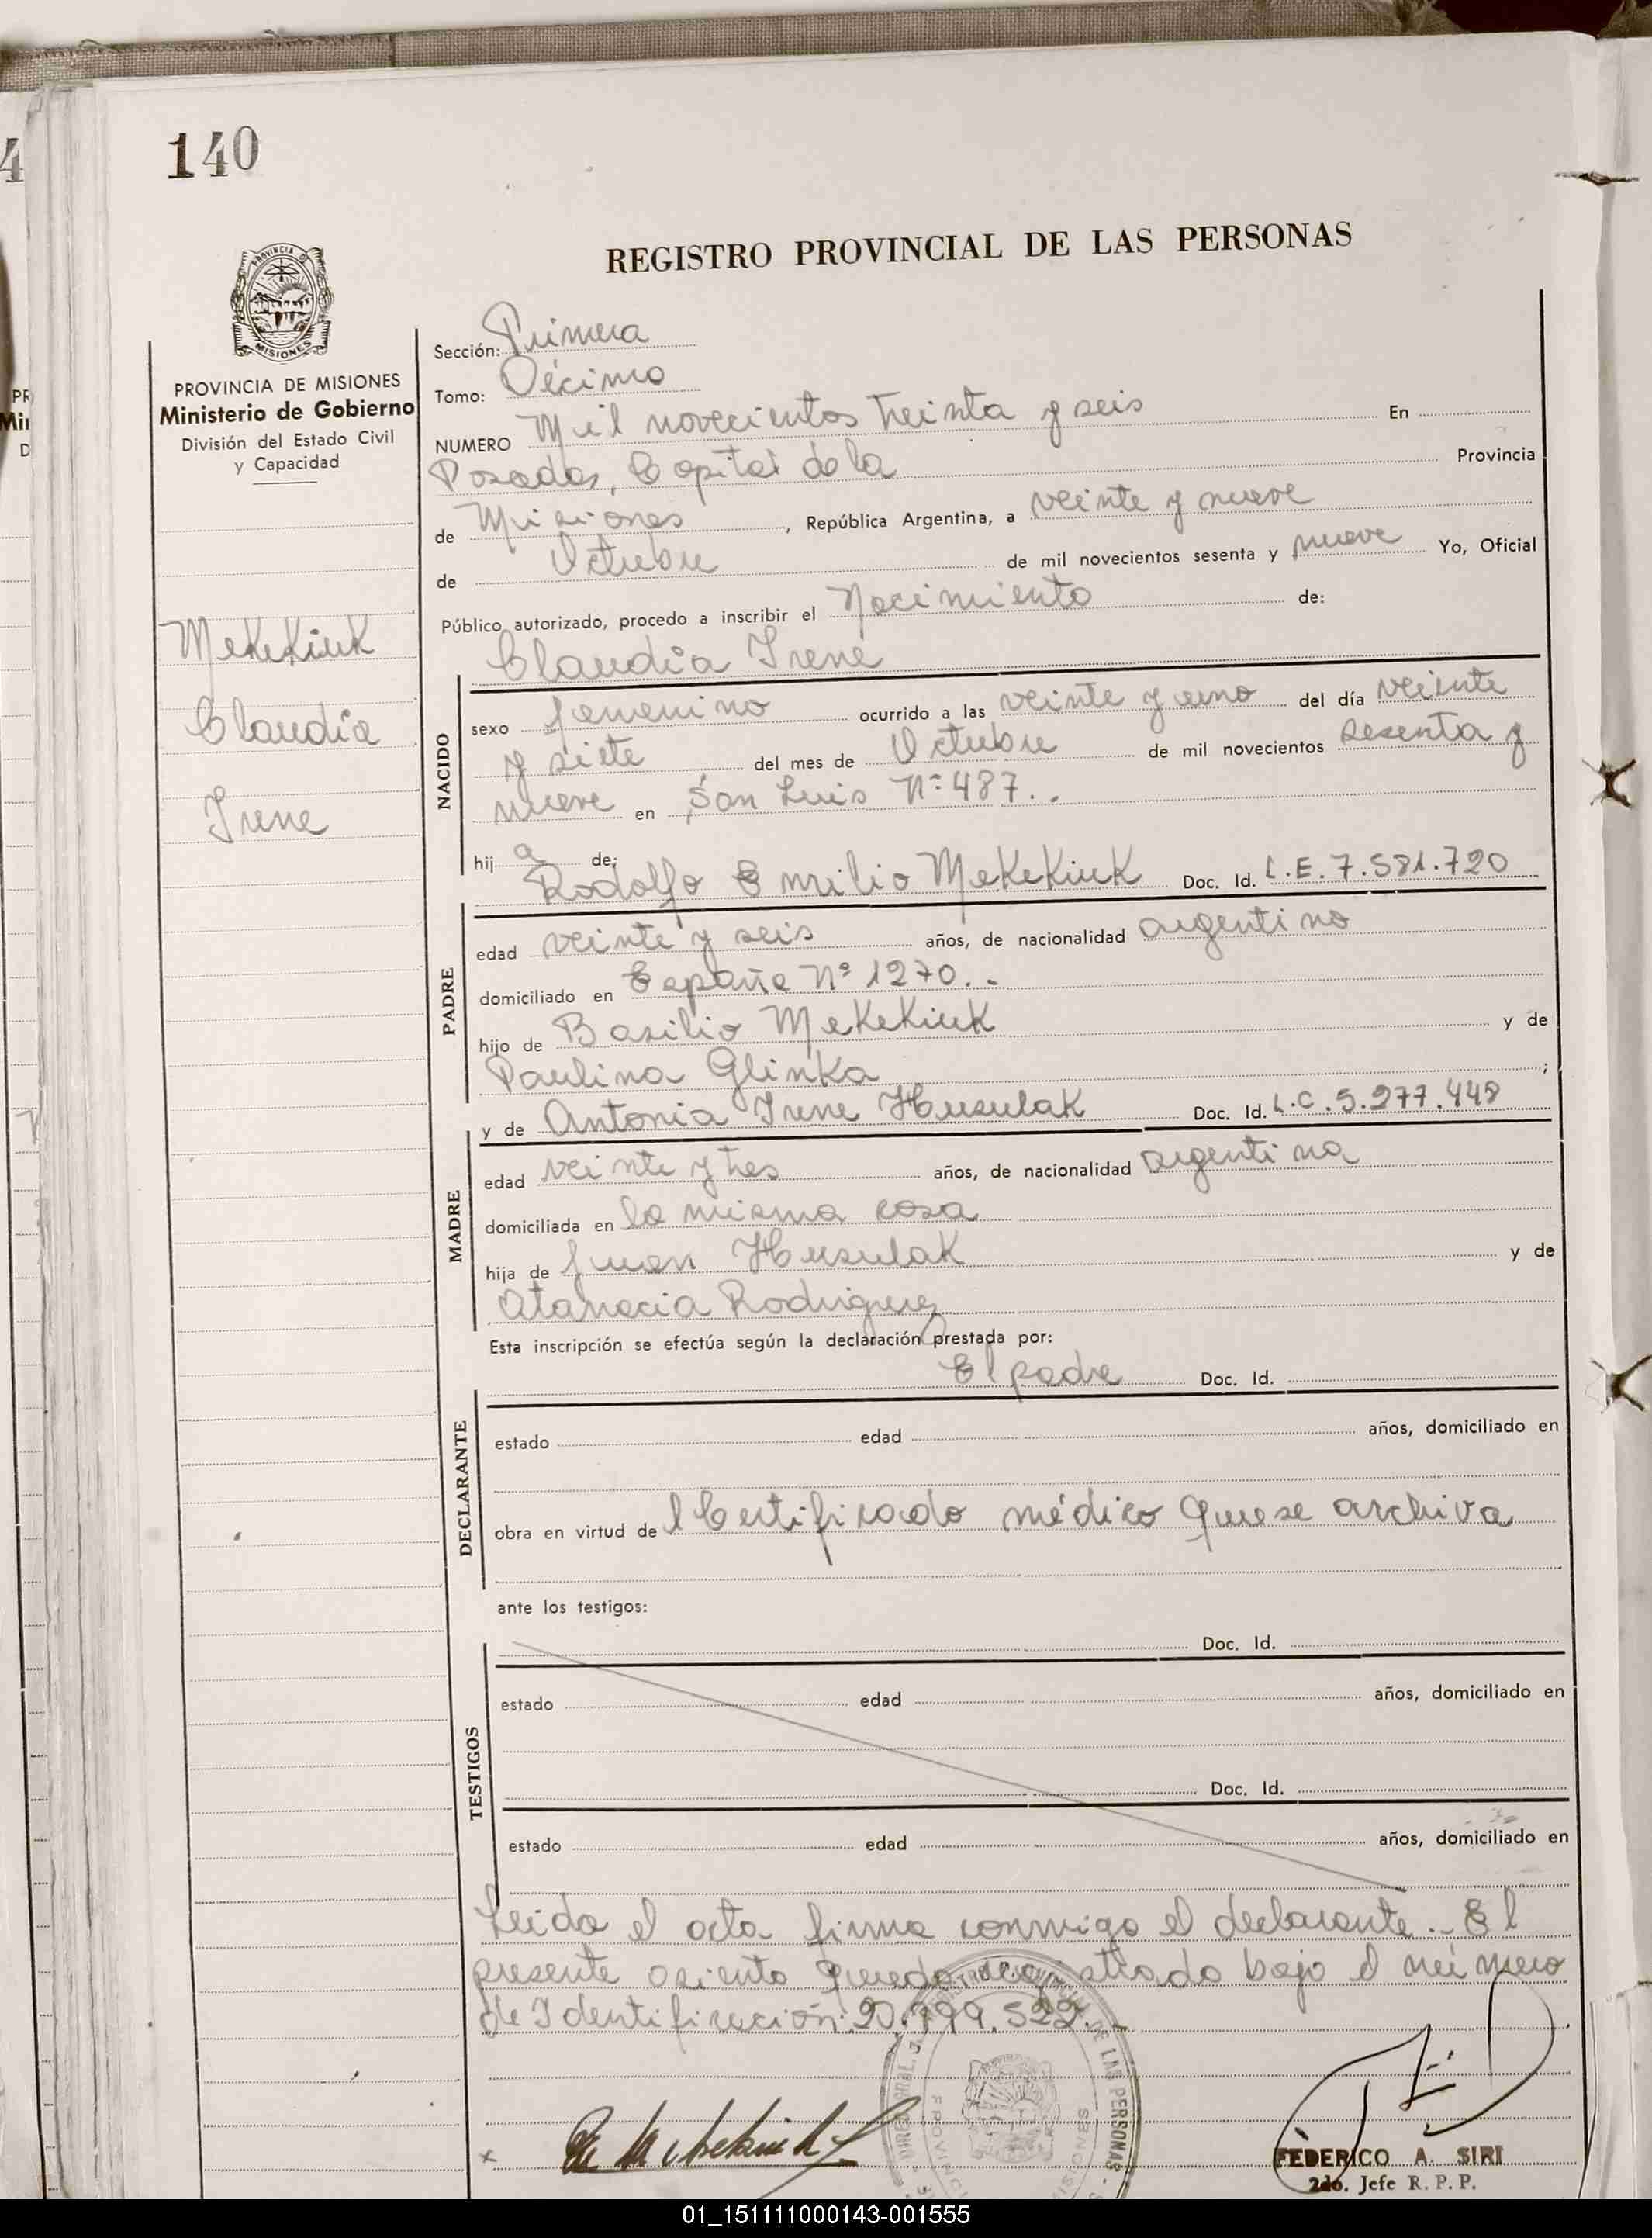 140
REGISTRO PROVINCIAL DE LAS PERSONAS
PROVINCIA DE MISIONES
Ministerio de Gobierno
División del Estado Civil
y Capacidad
Mekekiuk
Claudia
Irene
Sección: Primera
Tomo: Décimo
NUMERO Mil novecientos treinta y seis En
Posadas, Capital de la Provincia
de Misiones, República Argentina, a veinte y nueve
de Octubre de mil novecientos sesenta y nueve Yo, Oficial
Público autorizado, procedo a inscribir el Nacimiento de:
Claudia Irene
NACIDO
sexo femenino ocurrido a las veinte y uno del día veinte
y siete del mes de Octubre de mil novecientos sesenta y
nueve en San Luis Nº 487..
hij a de:
Rodolfo Emilio Mekekiuk Doc. Id. L.E. 7.581.720
PADRE
edad veinte y seis años, de nacionalidad argentino
domiciliado en España Nº 1270..
hijo de Basilio Mekekiuk y de
Paulina Glinka ;
y de Antonia Irene Husulak Doc. Id. L.C. 5.277.448
MADRE
edad veinte y tres años, de nacionalidad argentina
domiciliada en la misma casa
hija de Juan Husulak y de
Atanacia Rodriguez
Esta inscripción se efectúa según la declaración prestada por:
El padre Doc. Id.
DECLARANTE
estado edad años, domiciliado en
obra en virtud de l Certificado médico que se archiva
ante los testigos:
Doc. Id.
TESTIGOS
estado edad años, domiciliado en
Doc. Id.
estado edad años, domiciliado en
Leída el acta firma conmigo el declarante.- El
presente asiento queda registrado bajo el número
de Identificación: 20.799.522.-
x
FEDERICO A. SIRI
2do. Jefe R. P. P.
01_151111000143-001555